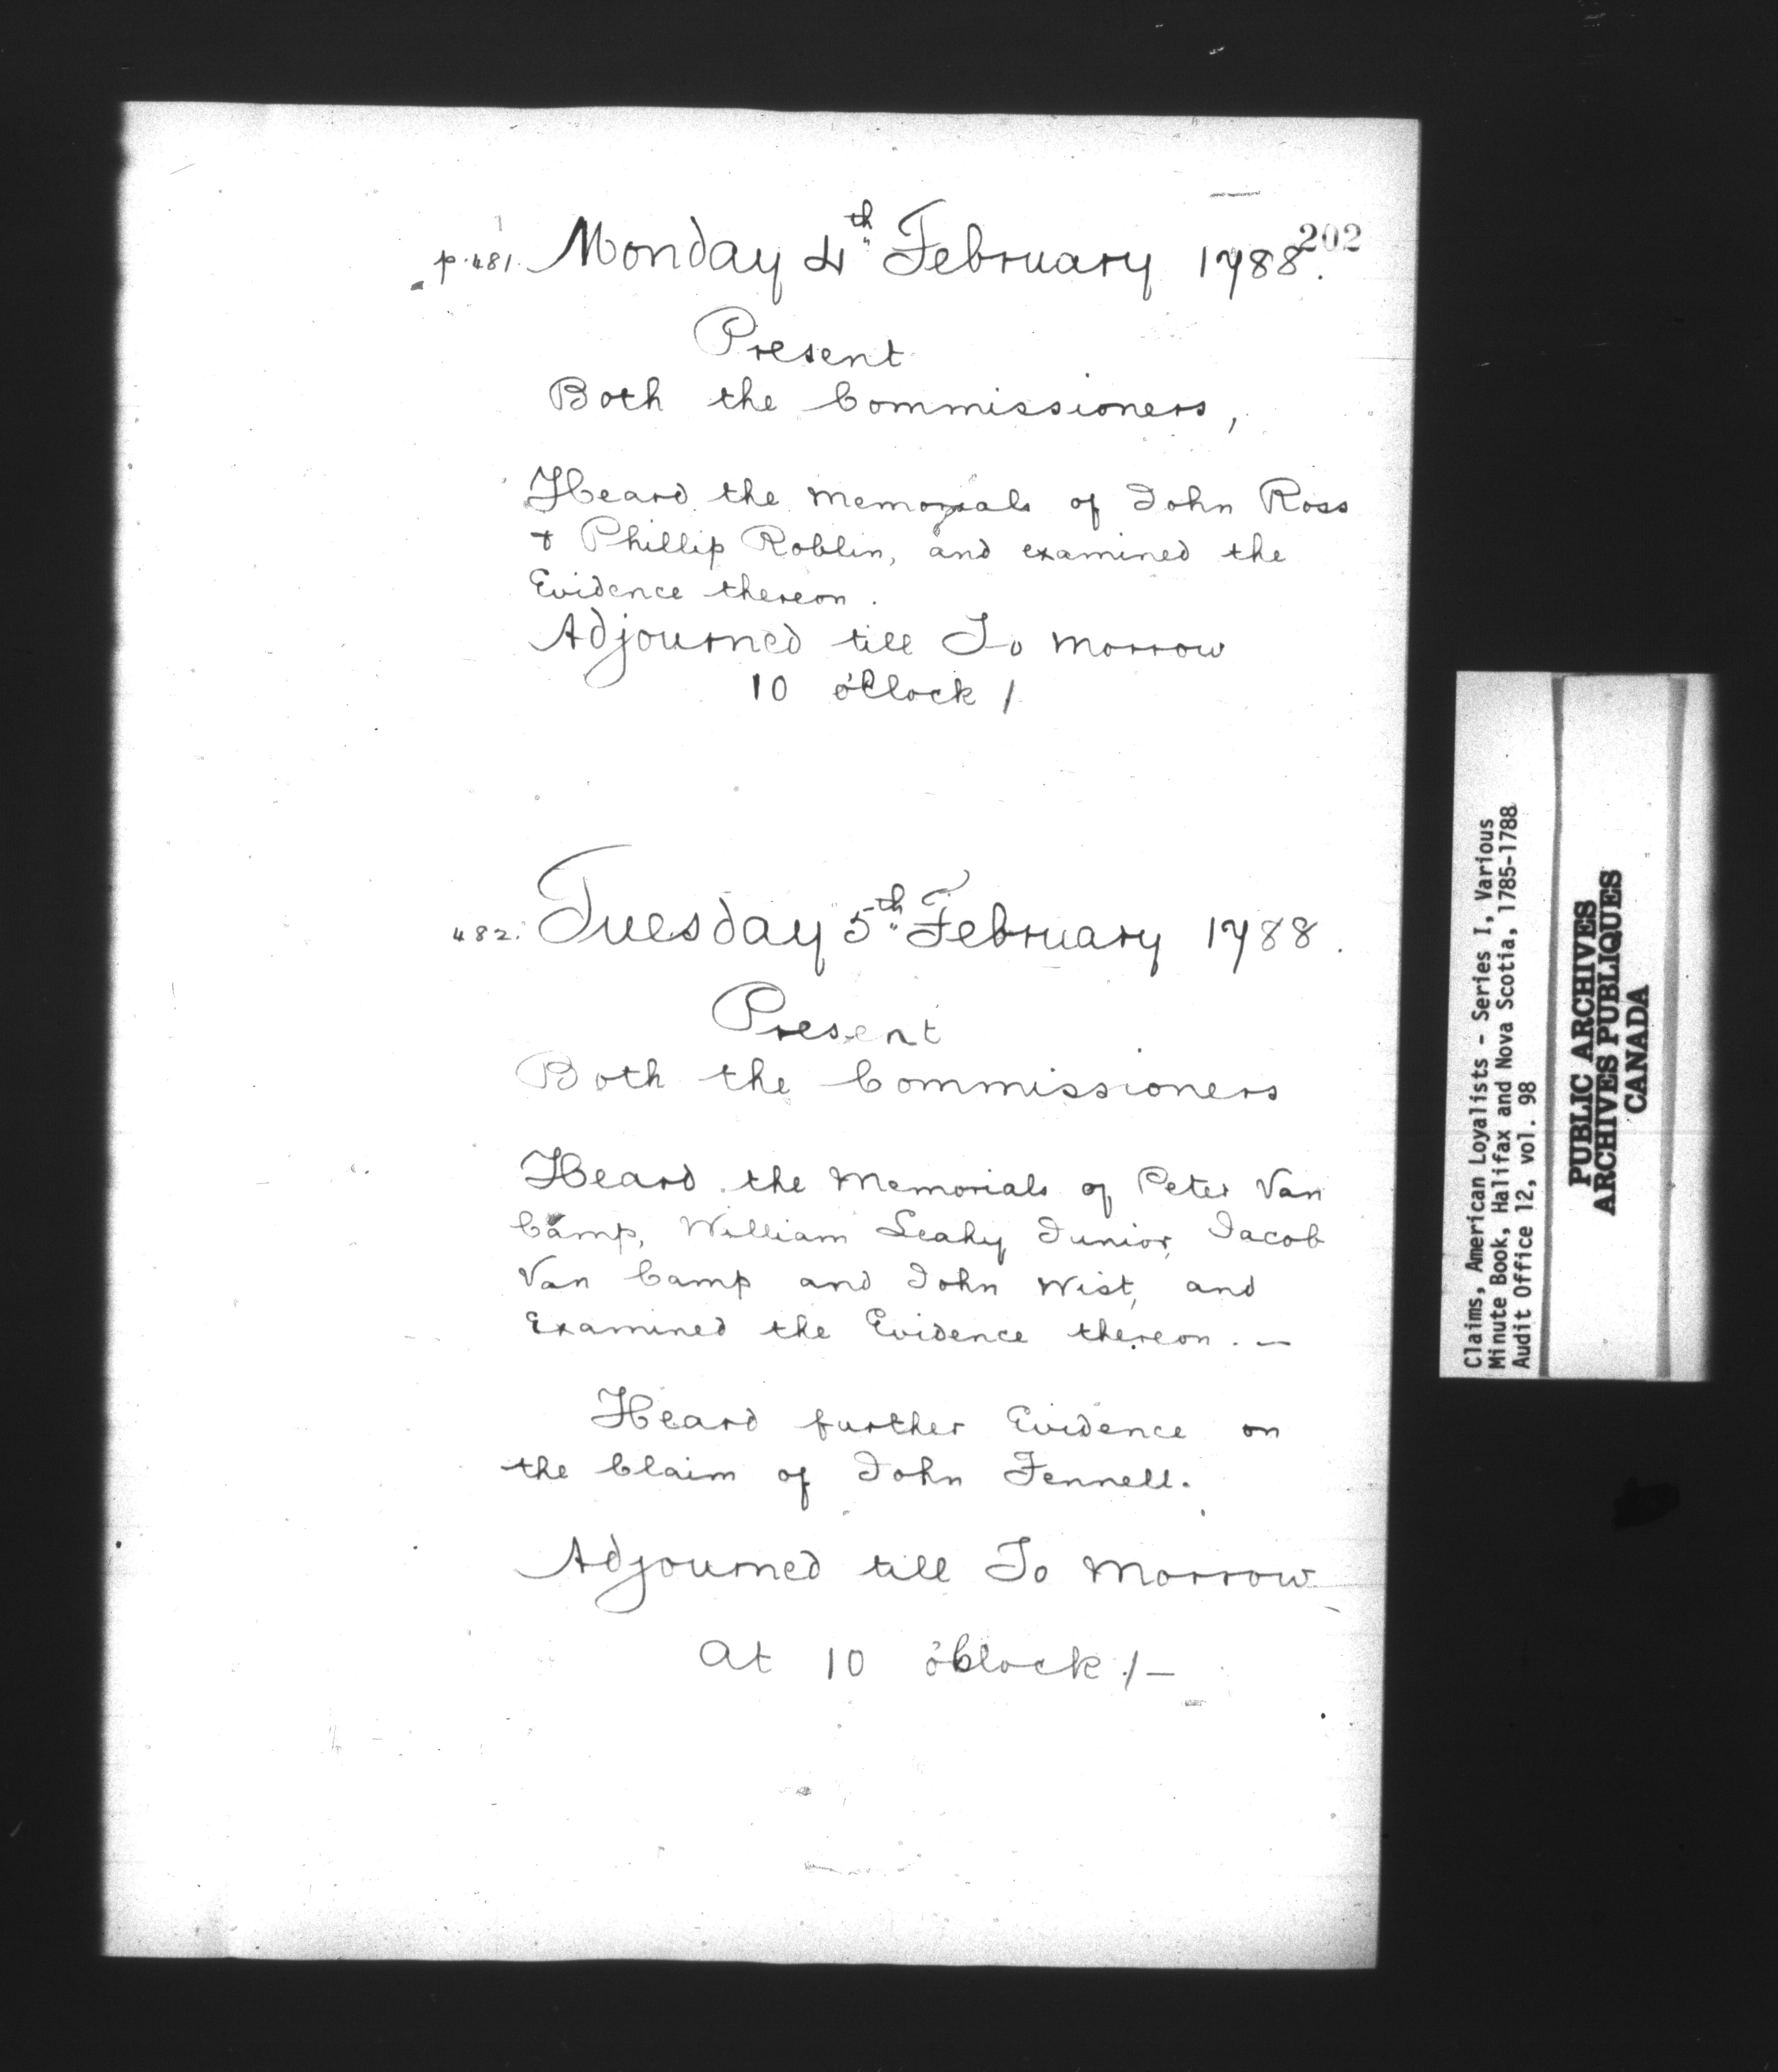 202
p. 481. Monday 4th February 1788.
Present
Both the Commissioners,
Heard the memorials of John Ross
& Phillip Roblin, and examined the
Evidence thereon.
Adjourned till To morrow
10 o'Clock /
482. Tuesday 5th February 1788.
Present
Both the Commissioners
Heard the Memorials of Peter Van
Camp, William Leahy Junior, Jacob
Van Camp and John Wist, and
Examined the Evidence thereon. —
Heard further Evidence on
the Claim of John Fennell.
Adjourned till To morrow
At 10 o'Clock /—
Claims, American Loyalists - Series I, Various
Minute Book, Halifax and Nova Scotia, 1785-1788
Audit Office 12, vol. 98
PUBLIC ARCHIVES
ARCHIVES PUBLIQUES
CANADA